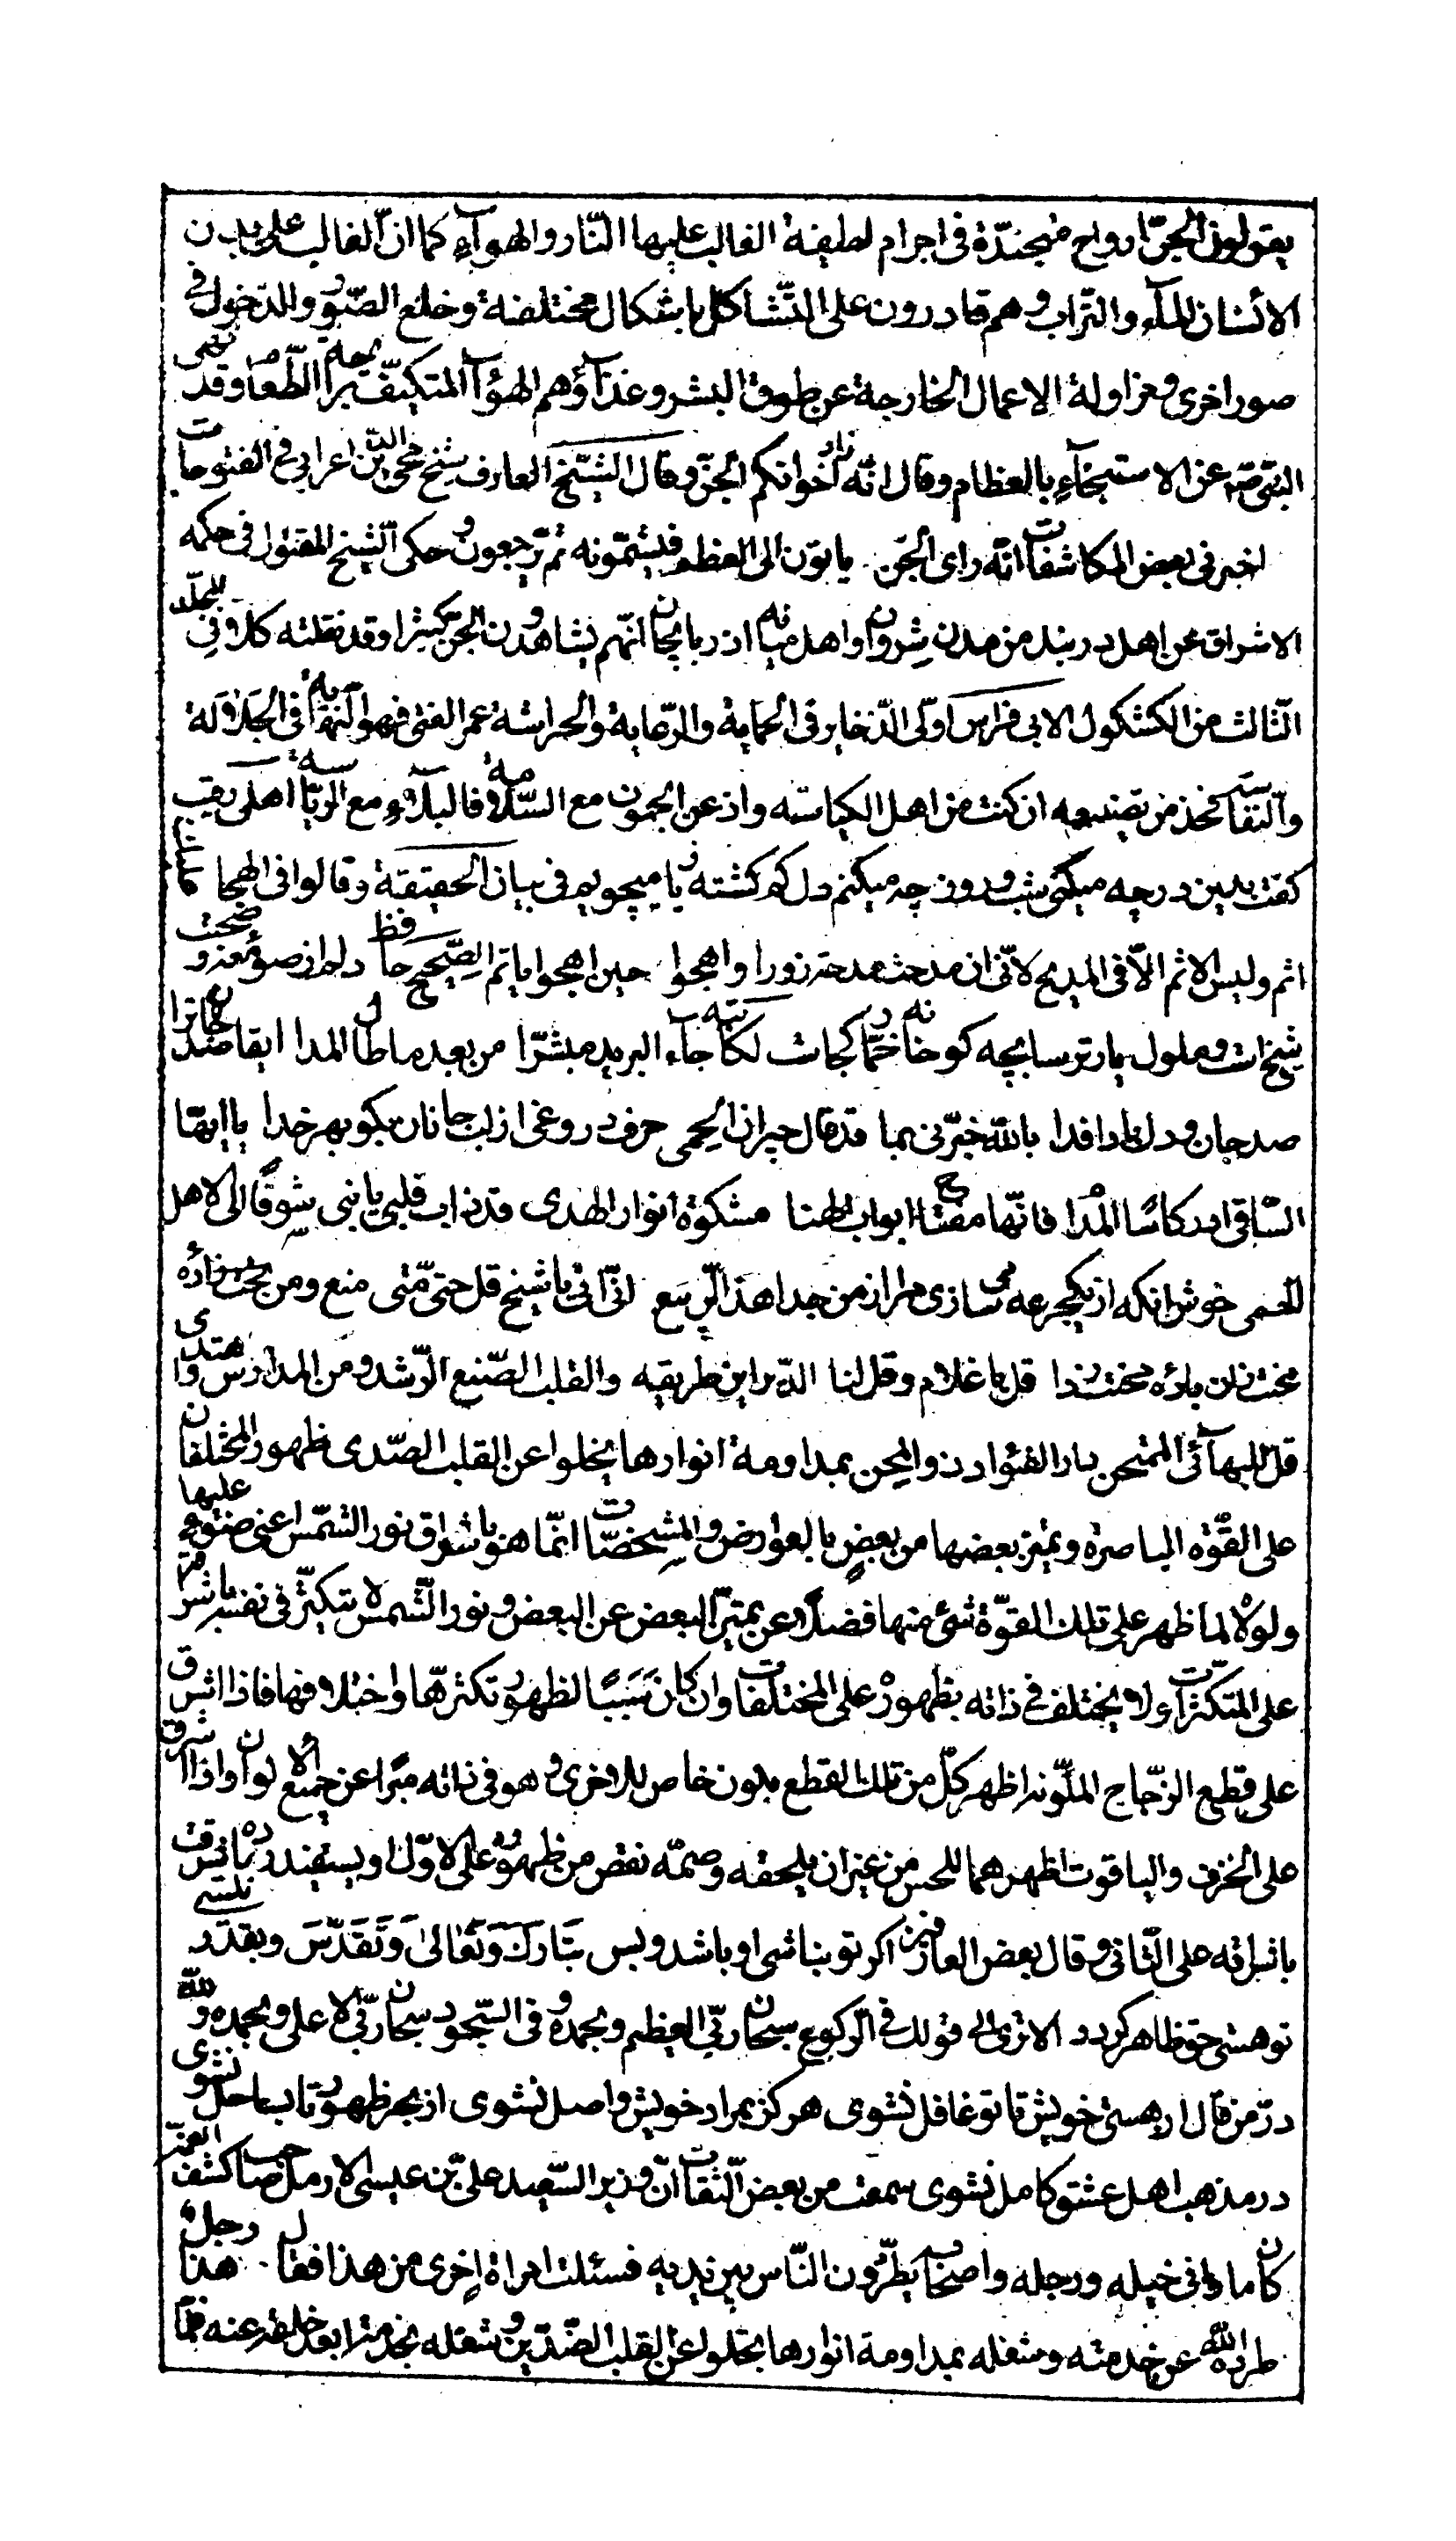 يقولون الجنّ ارواح متجندّة فى اجرام لطيفة الغالب عليها النّار والهوآء كما انّ الغالب على بدن
الأنسان المآء والتّراب وهم قادرون على التّشاكل باشكال مختلفة وخلع الصّور والدّخول فى
صور اخرى ومزاولة الاعمال الخارجة عن طوق البشر وغذآؤهم الهوآء المتكيّف برائحة الطّعام وقد نهى
النّبى صم عن الاستنجآء بالعظام وقال انّه زاد اخوانكم الجنّ وقال الشّيخ العارف شيخ محى الدّين اعرابى فى الفتوحات
اخبر فى بعض المكاشفات انّه راى الجّن ياتون الى العظم فيشمّونه ثم يرجعون و حكى الشّيخ المقتول فى حكمه
الاشراق عن اهل دربند من مدن شروان واهل ميانه اذربايجان انّهم يشاهدون الجنّ كثيرا وقد نقلته كلاو فى المجلّد
الثّالث من الكشكول لابى فراس اولى الذّخاير فى الحماية والرّعاية والحراسة عمر الفتى فهو النّهاية فى الجلالة
والنّفاسة فخذ من تضييعه ان كنت من اهل الكياسه واذ عن الجمون مع السّلامة فالبلآء مع الرّياسة اهلى
كفت بدين درجه ميكنى شب و روز چه ميكنم دل كم كشته را ميجويم فى بيان الحقيقة وقالوا فى الهجا
اثم وليس الاثم الّا فى المديح لانّى ان مدحت مدحته زورا واهجوا حين اهجوا ياتم الصّحيح حافظ دلم از صومعه و صحبت
شيخ است ملول يار ترسابچه كو خانه خمّار كجاست لكاتبه جآء البريد مبشّرا من بعد ما طال المدا ايقاصد
صد جان و دل بادا فدا بالله خبّرنى بما قد قال جيران الحمى حرف دروغى از لب جانان بكو بهر خدا يا ايّها
السّاقى ادر كاسًا المدام فانّها مفتاح ابواب الهنا مشكوة انوار الهدى قد ذاب قلبى يابنى شوقًا الى الاهل
الحمى خوش آنكه از يكجرعه مى سازى مرا از من جدا هذا الرّبيع اذ اتى يا شيخ قل حتى متى منع ومن
قل يا غلام وقل لنا الدّير اين طريقه والقلب الصّنيع الرّشد ومن المدارس واهتدى
قل للبهآئى الممتحن بمداومة انوارها يجلوا عن القلب الصّدى ظهور المختلفات
على القوّة الباصرة وتميّز بعضها من بعضٍ بالعوارض والمشخصّات انّما هو باشراق نور الشّمس اعنى ضوئه عليها
ولولا لما ظهر على تلك القوّة شئ منها فضلًا عن تميّز البعض عن البعض ونور الشّمس لا يتكثّر فى نفسه باشراقه
على المتكثّرات ولا يختلف فى ذاته بظهوره على المختلفات وان كان سَبَبًا لظهور تكثّرها واختلافها فاذا اشرق
على قطع الزّجاج الملوّنه اظهر كلّ من تلك القطع بلون خاص للاخرى و هو فى ذاته مبّرا عن جميع الألوان واذا اشرق
على الخزف والياقوت اظهرهما للحس من غير ان يلحقه وصمّه نقص من ظهوره على الاوّل او يستفيد زيادة شرف
باشراقه على الثّانى وقال بعض العارفين اكر تو بناشى او باشد و بس تَبَارَكَ وَتَعَالىٰ وَتَقَدَّسَ وبقدر نيستى
تو هستى حق ظاهر كردد الا ترى الى قولك فى الرّكوع سبحان ربّى العظيم وبحمده و فى السّجود سبحان ربّى الاعلى وبحمده ولله
درّ من قال از هستى خويش تا تو غافل نشوى هركز بمراد خويش واصل نشوى از بحر ظهور تا بساحل نشوى
در مذهب اهل عشق كامل نشوى سمعت من بعض الثّقات انّ وزير السّعيد على بّن عيسى الاربلى صاحب كشف الغمّة
كان مارا فى خيله ورجله واصحابه يطرّدون النّاس بين يديه فسئلت امراة اخرى من هذا فقال هذا رجل
طرده الله عن خدمته وشغله بمداومة انوارها يجلوا عن القلب